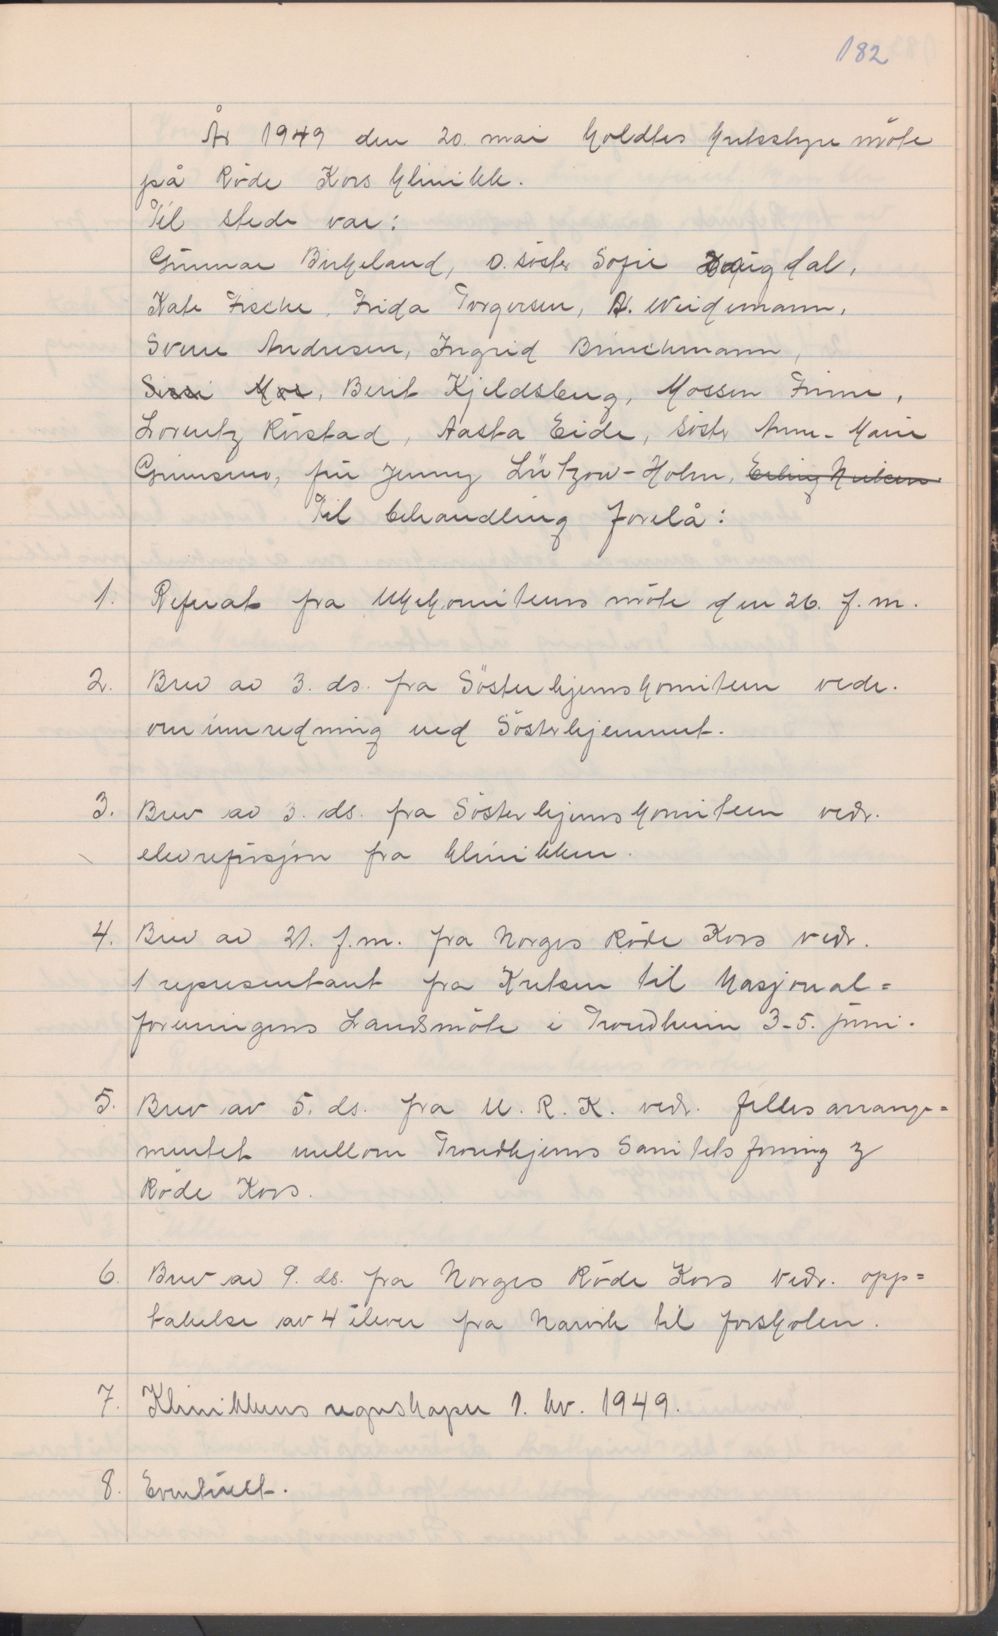 182
År 1949 den 20. mai holdtes kretsstyremöte
på Röde Kors klinikk.
Til stede var:
Gunnar Birkeland, o. söster Sofie Haugdal,
Kate Fische, Frida Torgersen, A. Weidemann,
Sverre Andresen, Ingrid Brinchmann,
Sissi Moe, Berit Kjeldsberg, Mossen Finne,
Lorentz Rirstad, Aasta Eide, söster Anne-Marie
Grimsmo, fru Jenny Lützow-Holm,
Til behandling forelå:
1. Referat fra Ukekomiteens möte den 26. f.m.
2. Brev av 3. ds. fra Sösterhjemskomiteen vedr.
ominnredning ved Sösterhjemmet.
3. Brev av 3. ds. fra Sösterhjemskomiteen vedr.
elevrefusjon fra klinikken.
4. Brev av 21. f.m. fra Norges Röde Kors vedr.
1 representant fra Kretsen til Nasjonal=
foreningens Landsmöte i Trondheim 3-5. juni.
5. Brev av 5. ds. fra U. R. K. vedr. fellesarrange=
mentet mellom Trondhjems Sanitetsforening og
Röde Kors.
6. Brev av 9. ds. fra Norges Röde Kors vedr. opp=
takelse av 4 elever fra Narvik til forskolen.
7. Klinikkens regnskaper 1. kv. 1949.
8. Eventuelt.